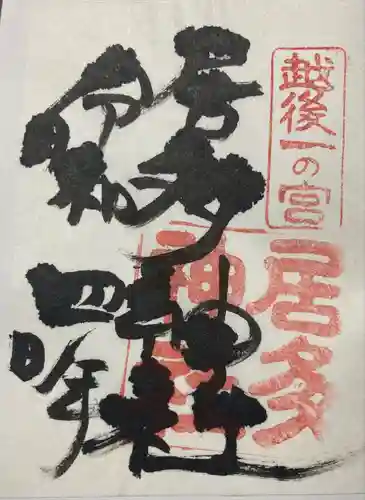 越後一の宮
居多神社
居多神社
令和四年